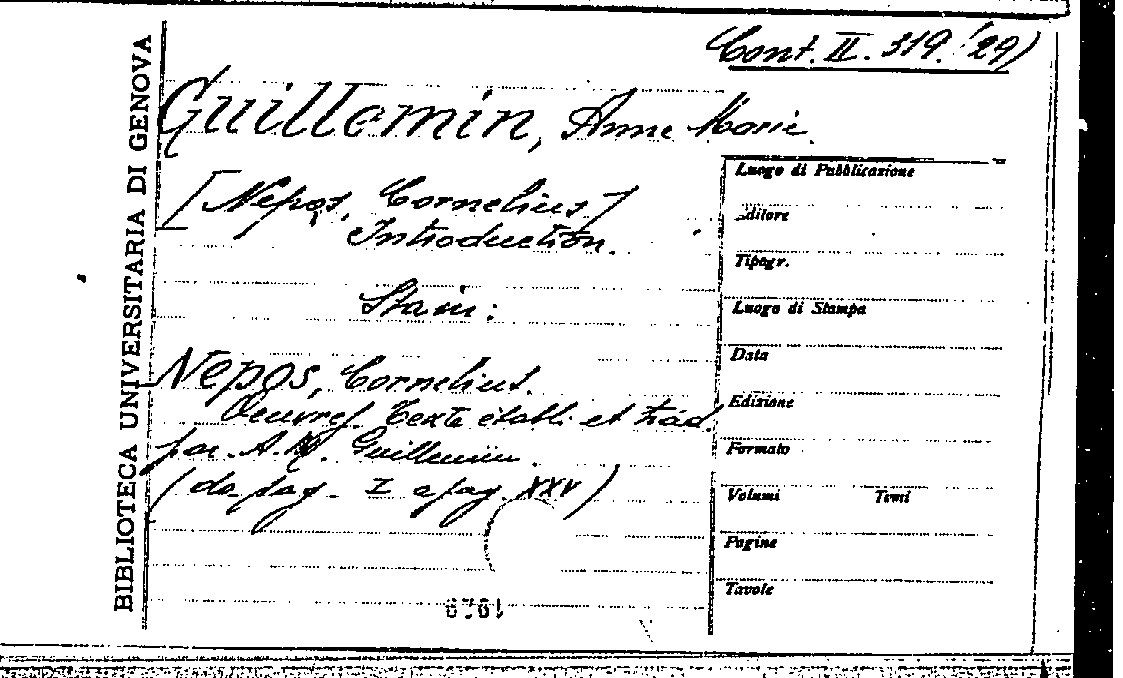 Cont. II. 319. (29)
BIBLIOTECA UNIVERSITARIA DI GENOVA
Guillemin, Anne Marie.
[Nepos, Cornelius]
Introduction.
Sta in:
Nepos, Cornelius.
Oeuvres. Texte établi et trad.
par A.M. Guillemin.
(da pag. I a pag. XXV)
Luogo di Pubblicazione
Editore
Tipogr.
Luogo di Stampa
Data
Edizione
Formato
Volumi Tomi
Pagine
Tavole